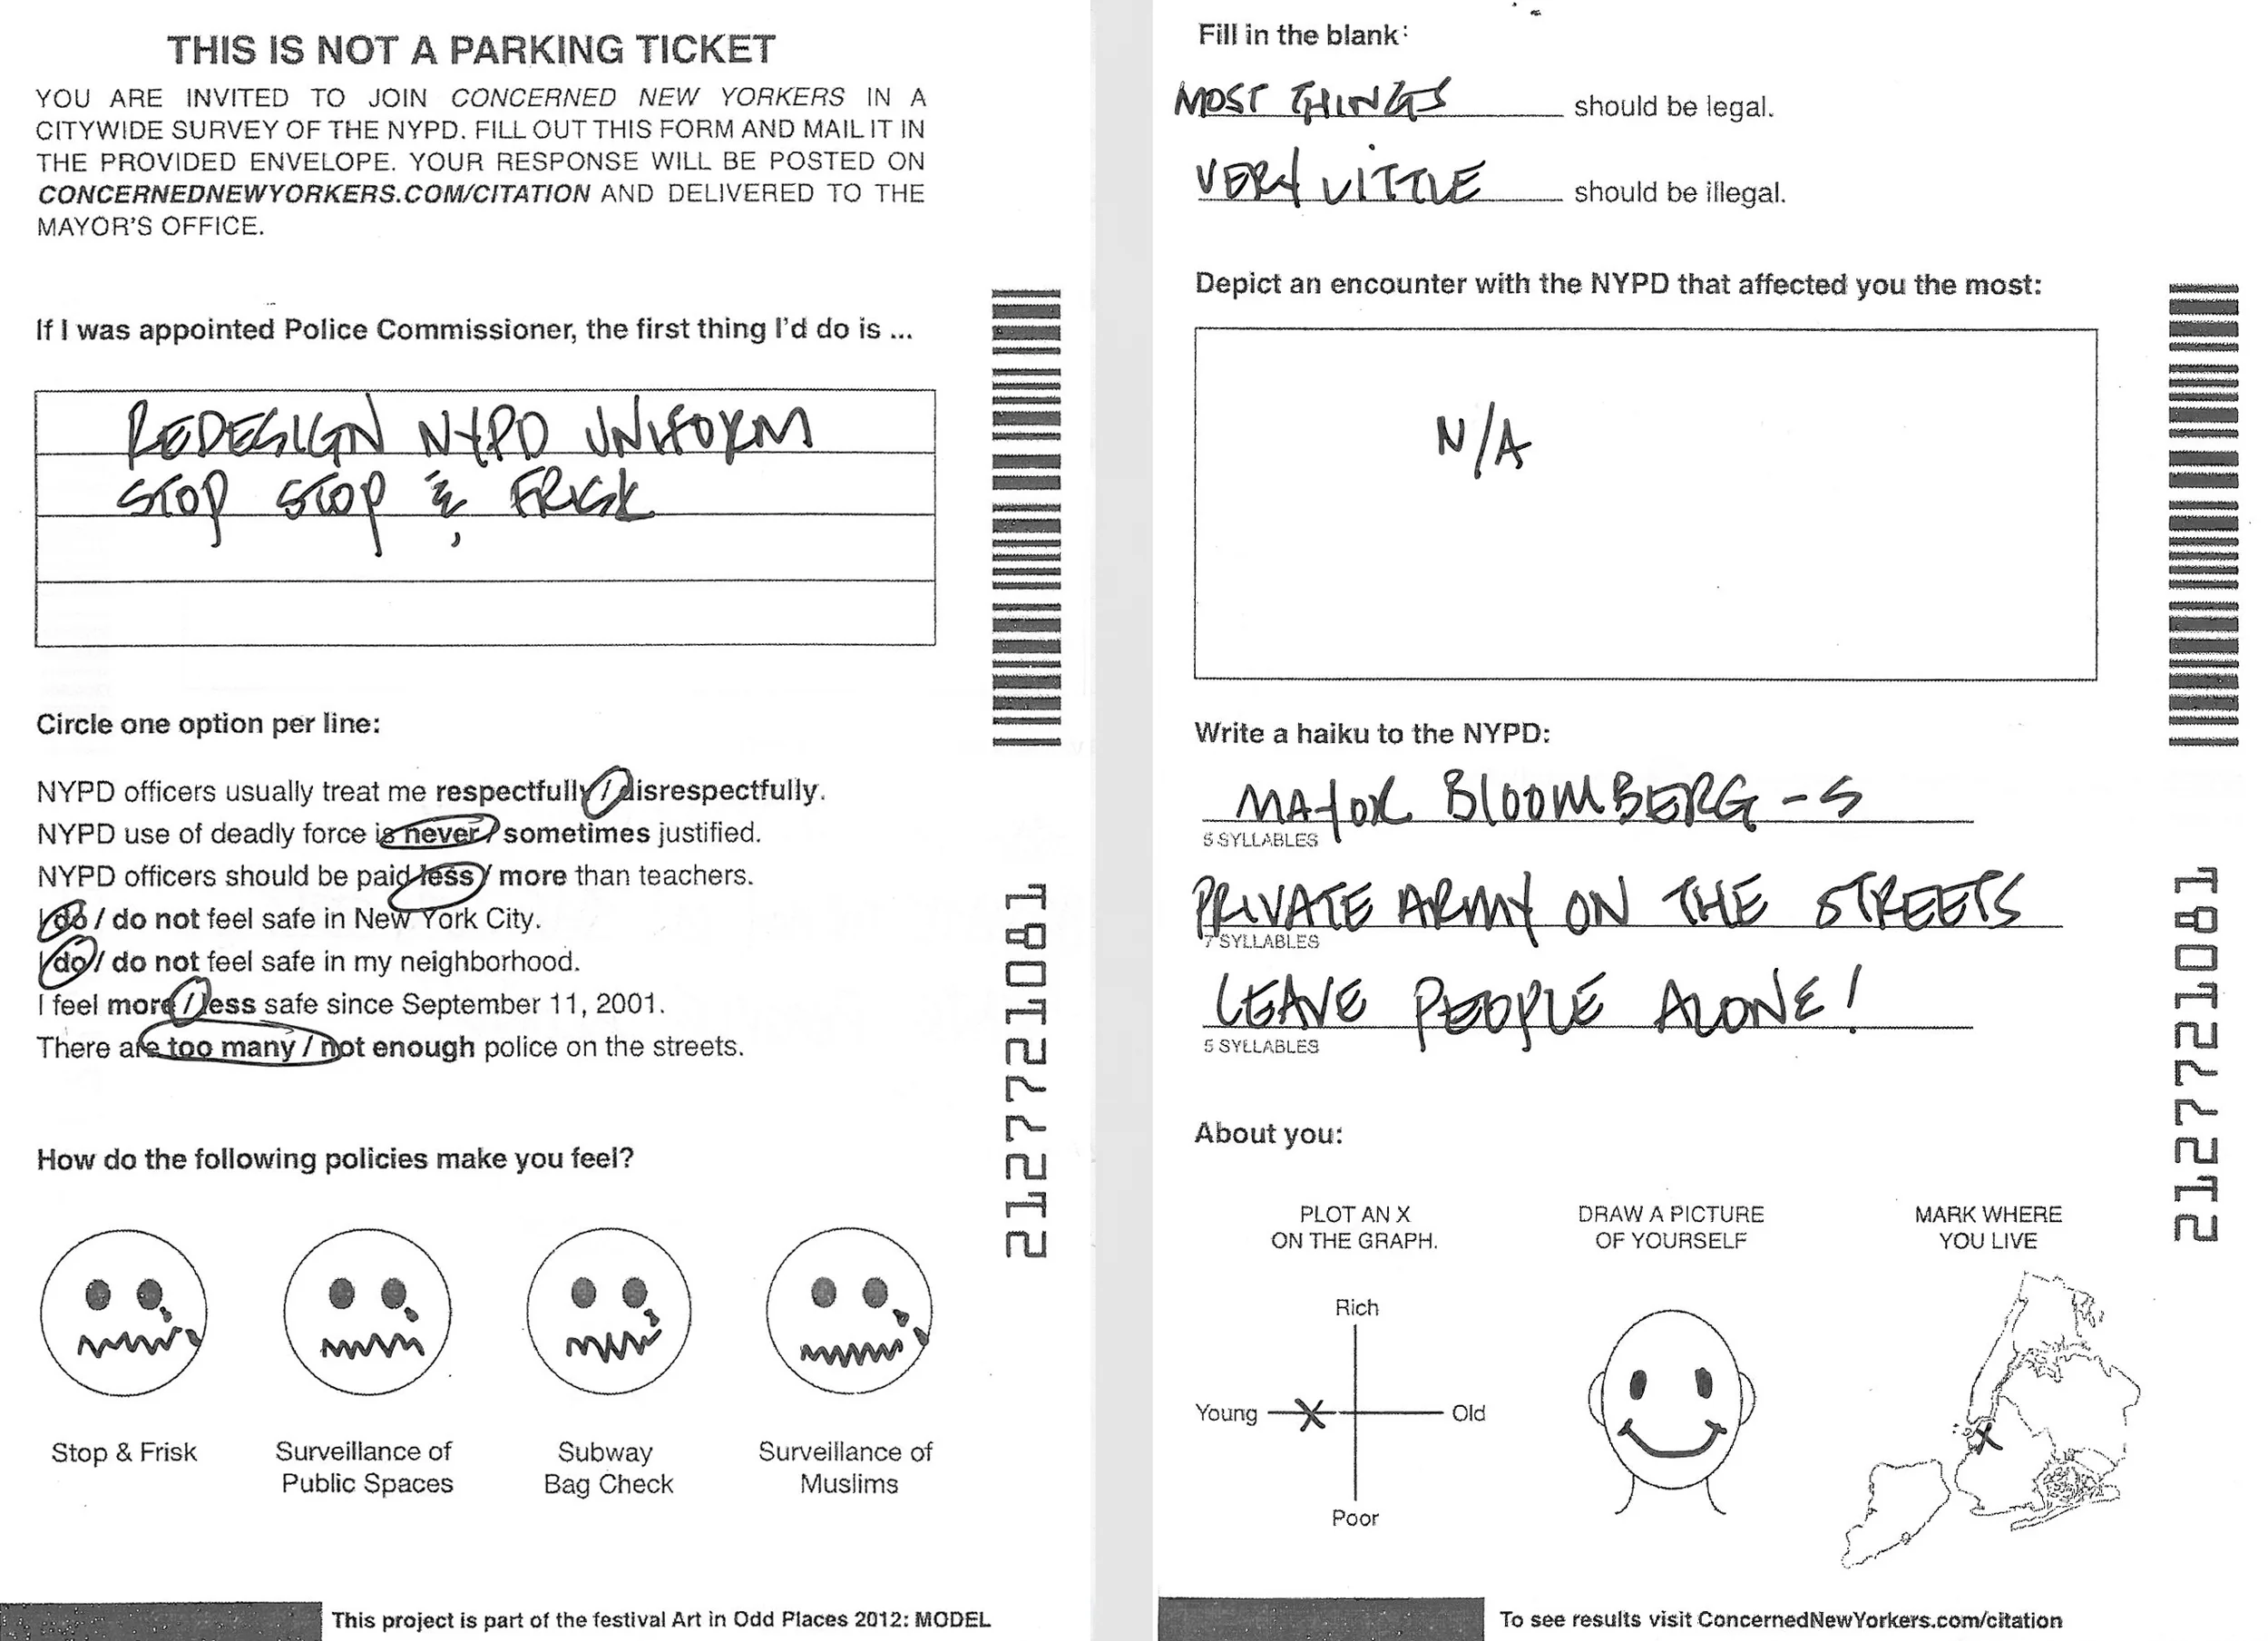 THIS IS NOT A PARKING TICKET
YOU ARE INVITED TO JOIN CONCERNED NEW YORKERS IN A
CITYWIDE SURVEY OF THE NYPD. FILL OUT THIS FORM AND MAIL IT IN
THE PROVIDED ENVELOPE. YOUR RESPONSE WILL BE POSTED ON
CONCERNEDNEWYORKERS.COM/CITATION AND DELIVERED TO THE
MAYOR'S OFFICE.
If I was appointed Police Commissioner, the first thing I'd do is ...
REDESIGN NYPD UNIFORM
STOP STOP & FRISK
Circle one option per line:
NYPD officers usually treat me respectfully / disrespectfully.
NYPD use of deadly force is never / sometimes justified.
NYPD officers should be paid less / more than teachers.
I do / do not feel safe in New York City.
I do / do not feel safe in my neighborhood.
I feel more / less safe since September 11, 2001.
There are too many / not enough police on the streets.
How do the following policies make you feel?
Stop & Frisk
Surveillance of
Public Spaces
Subway
Bag Check
Surveillance of
Muslims
2127721081
This project is part of the festival Art in Odd Places 2012: MODEL
Fill in the blank:
MOST THINGS should be legal.
VERY LITTLE should be illegal.
Depict an encounter with the NYPD that affected you the most:
N/A
Write a haiku to the NYPD:
MAYOR BLOOMBERG-S
5 SYLLABLES
PRIVATE ARMY ON THE STREETS
7 SYLLABLES
LEAVE PEOPLE ALONE!
5 SYLLABLES
About you:
PLOT AN X
ON THE GRAPH.
Rich
Young
X
Old
Poor
DRAW A PICTURE
OF YOURSELF
MARK WHERE
YOU LIVE
X
2127721081
To see results visit ConcernedNewYorkers.com/citation